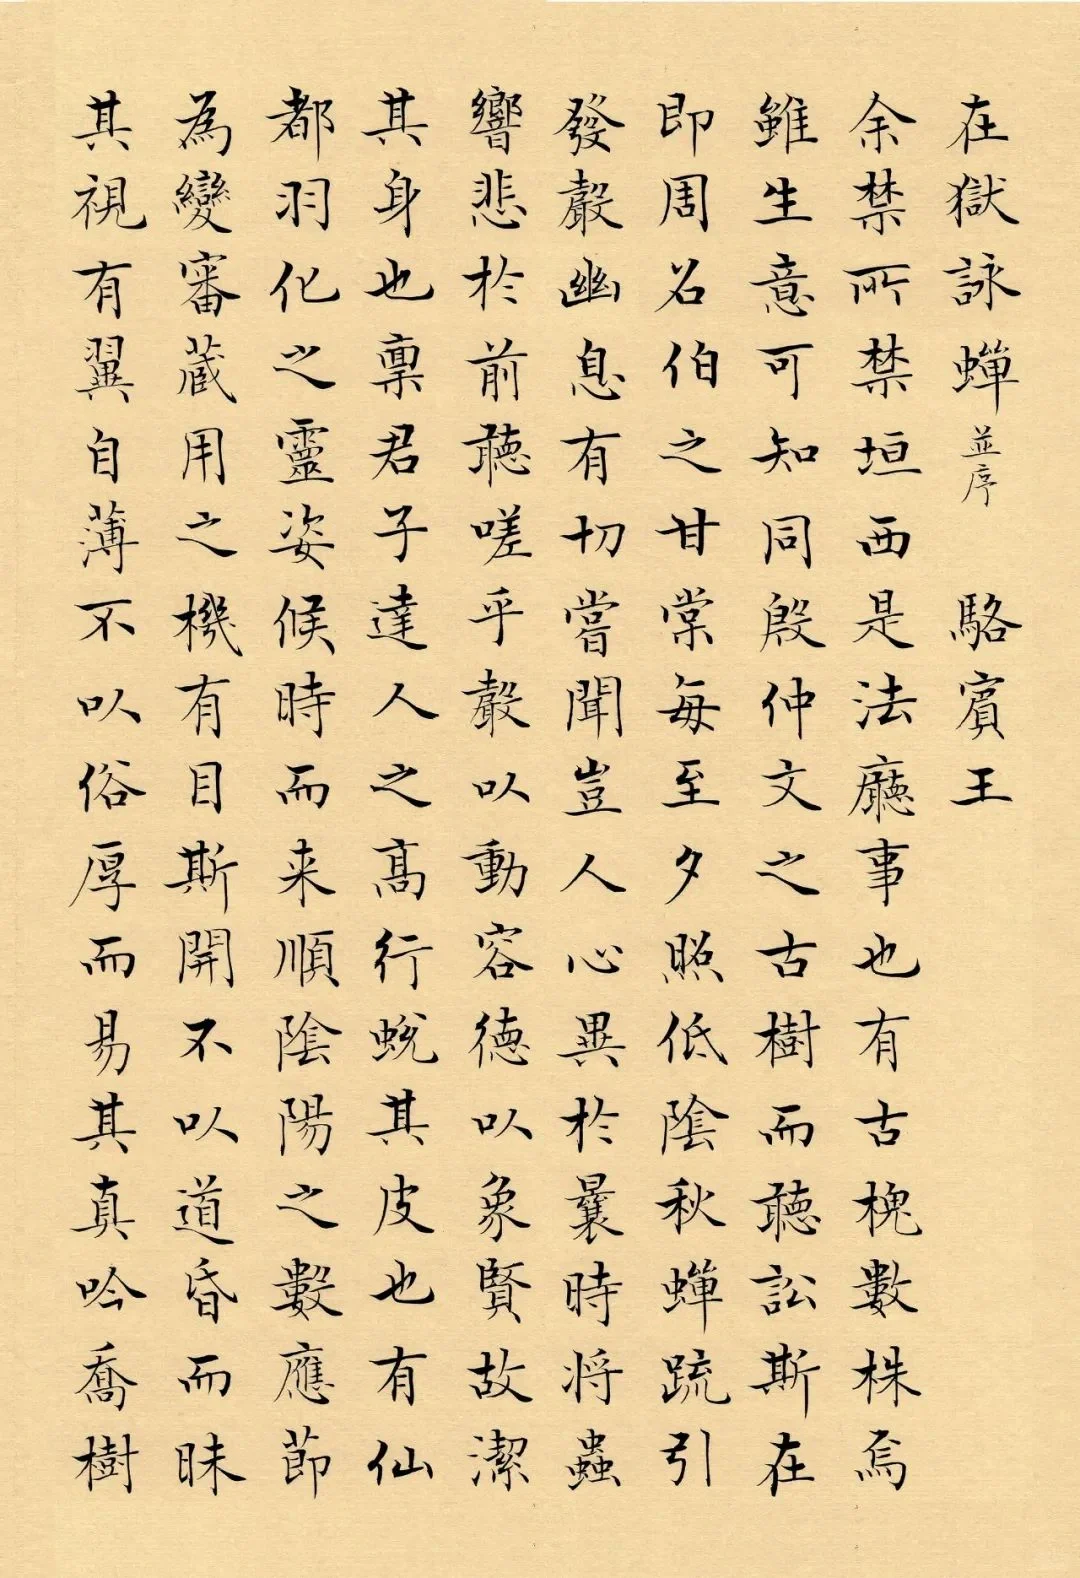 在獄詠蟬並序 駱賓王
余禁所禁垣西是法廳事也有古槐數株焉
雖生意可知同殷仲文之古樹而聽訟斯在
即周召伯之甘棠每至夕照低陰秋蟬疏引
發聲幽息有切嘗聞豈人心異於曩時將蟲
響悲於前聽嗟乎聲以動容德以象賢故潔
其身也稟君子達人之高行蛻其皮也有仙
都羽化之靈姿候時而来順陰陽之數應節
為變審藏用之機有目斯開不以道昏而昧
其視有翼自薄不以俗厚而易其真吟喬樹